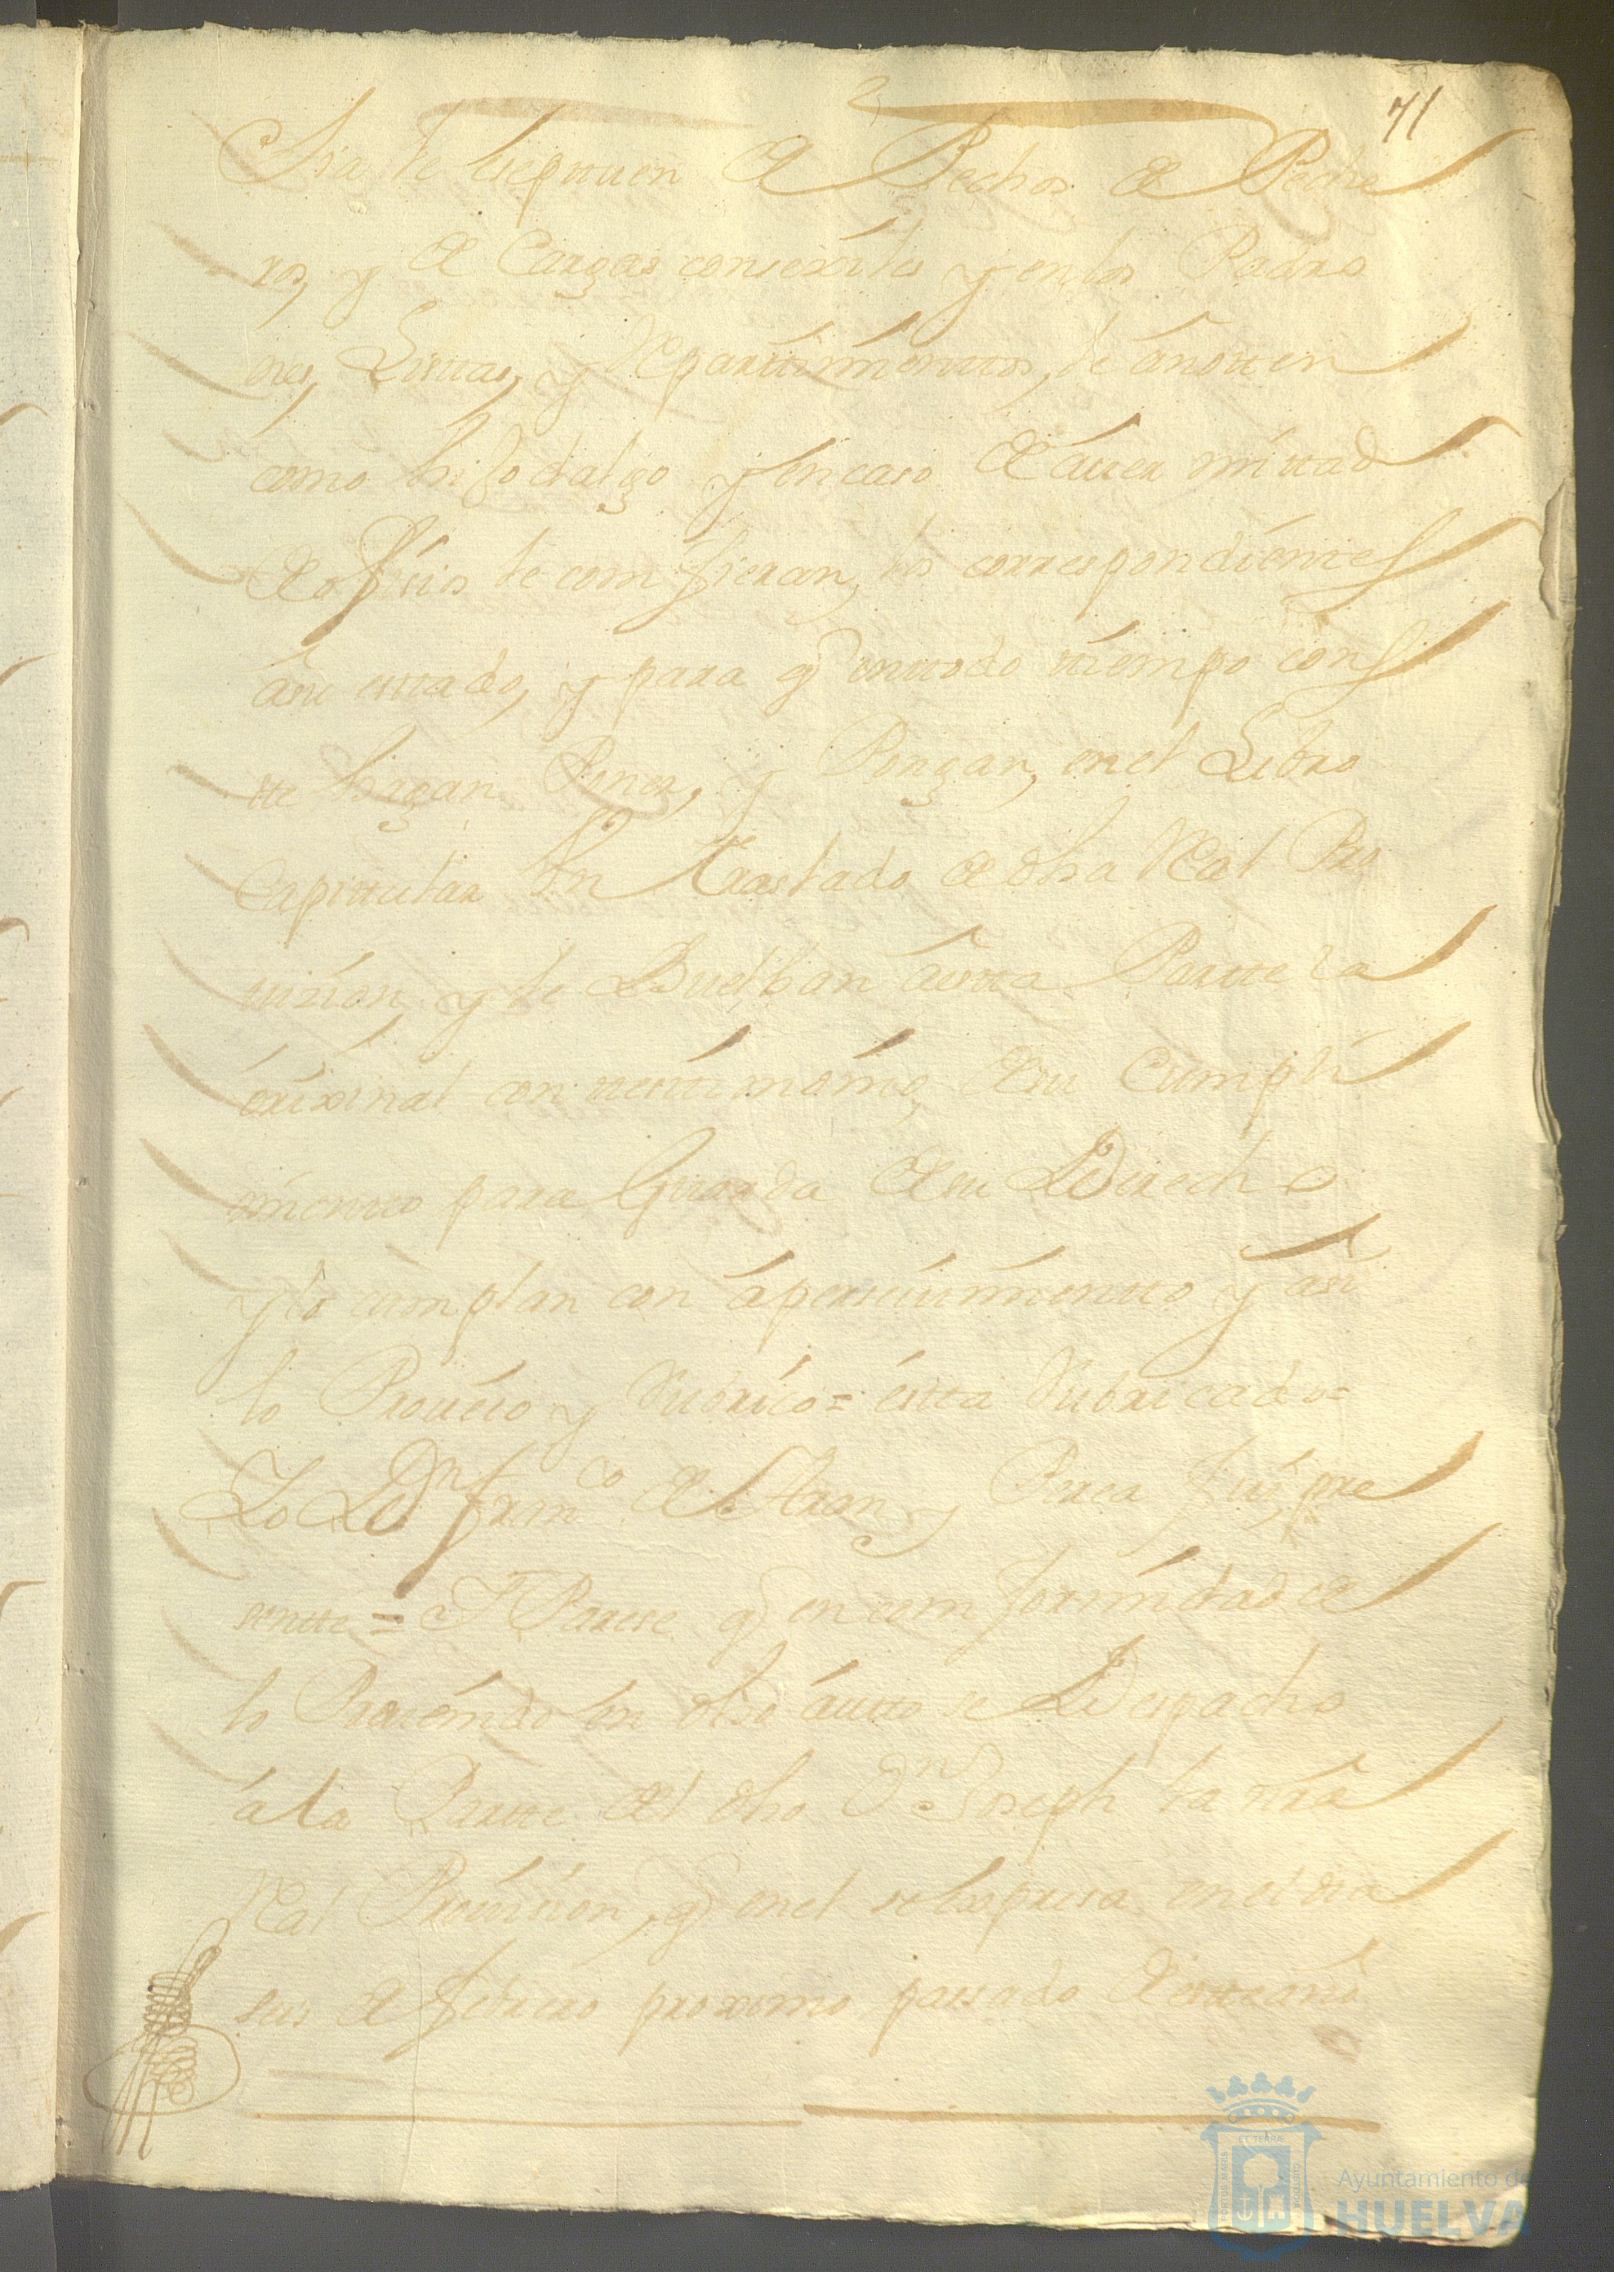 71
Sia le exepttuen de Pechos de Peche
ros, y de Cargas consexiles y en los Padro
nes, Listtas, y Repartimientos, le anotten
como hijodalgo y en caso de auer mittad
de ofisios le comfieran, los correspondientes
a su estado, y para q̃ en ttodo tiempo cons
te hagan Poner, y Pongan, en el Libro
Capittular Un Traslado de dha Real Pro
uision, y le Buelban a estta Partte la
orixinal con testtimonio, de su Cumpli
mientto para Guarda de su Derecho
y lo cumplan con apersiuimientto y asi
lo Proueio y Rubrico = estta Rubricado =
Yo Dn. Franco. de y Perea fui pre
sentte = Y Parese q̃ en comformidad de
lo Proueido en dho autto se Despacho
a la Partte del dho Dn. Joseph la nra
Real Prouision, q̃ en el se Expresa en el dia
seis de febrero proximo passado de estte año
Ayuntamiento de
HUELVA